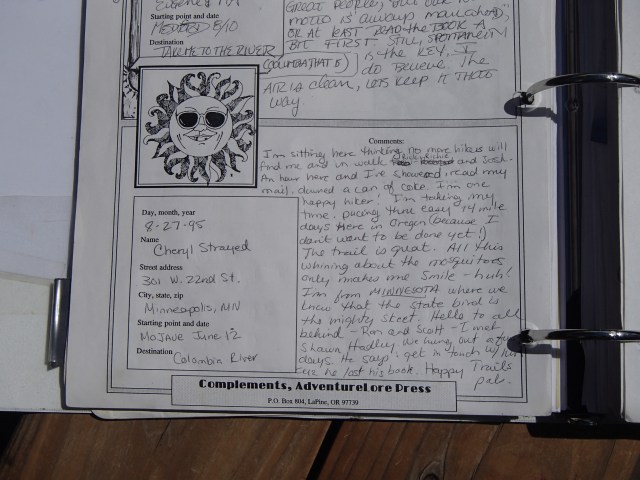 Eugene, OR
Starting point and date
Medford 8/10
Destination
TAKE ME TO THE RIVER
(COLUMBIA THAT IS)
GREAT PEOPLE, BUT OUR
MOTTO IS ALWAYS
OR AT LEAST READ the BOOK A
BIT FIRST STILL, SPONTANEITY
is the KEY, I
do BELIEVE. The
AIR IS clean, LETS KEEP IT THAT
way.
Comments:
I'm sitting here thinking no more hikers will
find me and in walk and Josh.
An hour here and I've showered, read my
mail, downed a can of coke. I'm one
happy hiker! I'm taking my
time, pacing these easy 14 mile
days there in Oregon (because I
don't want to be done yet!)
The trail is great. All this
whining about the mosquitoes
only makes me smile - huh!
I'm from MINNESOTA where we
know that the state bird is
the mighty skeet. Hello to all
behind - Ron and Scott - I met
Shawn Hadley we hung out a few
days. He says: get in touch w/ him
cuz he lost his book. Happy Trails
pal.
Day, month, year
8-27-95
Name
Cheryl Strayed
Street address
301 W. 22nd St.
City, state, zip
Minneapolis, MN
Starting point and date
Mojave June 12
Destination
Columbia River
Complements, AdventureLore Press
P.O. Box 804, LaPine, OR 97739